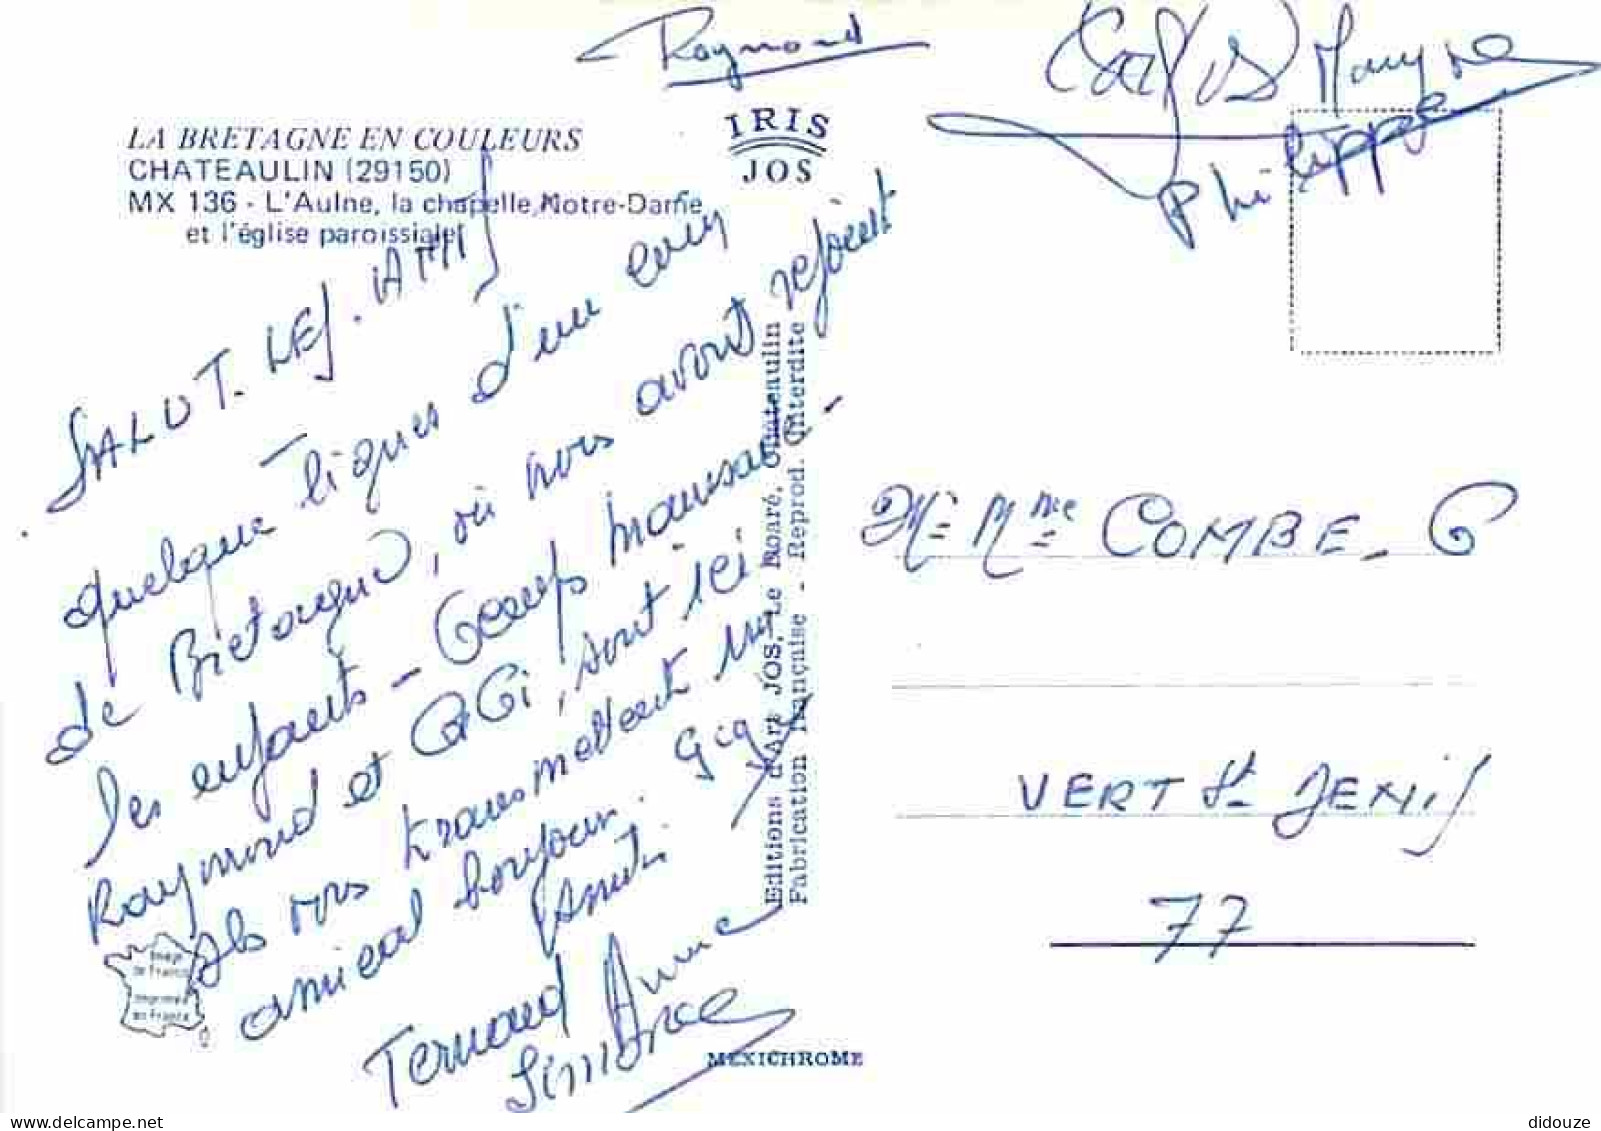 Raymond
Carlos Maryse
Philippe
IRIS
JOS
LA BRETAGNE EN COULEURS
CHATEAULIN (29150)
MX 136 - L'Aulne, la chapelle Notre-Dame
et l'église paroissiale
SALUT. LES. AMIS
quelque lignes d'un coin
de Bretagne, où nous avons rejoint
les enfants -
Raymond et GiGi, sont ici
ils vous transmettent un
amical bonjour. Gégé
Fernand Anne
Simone
Editions d'Art JOS, Le Doaré, Châteaulin
Fabrication française - Reprod. interdite
Image
de France
Imprimé
en France
MEXICHROME
M= Mme= COMBE - G
VERT St= DENiS
77
didouze